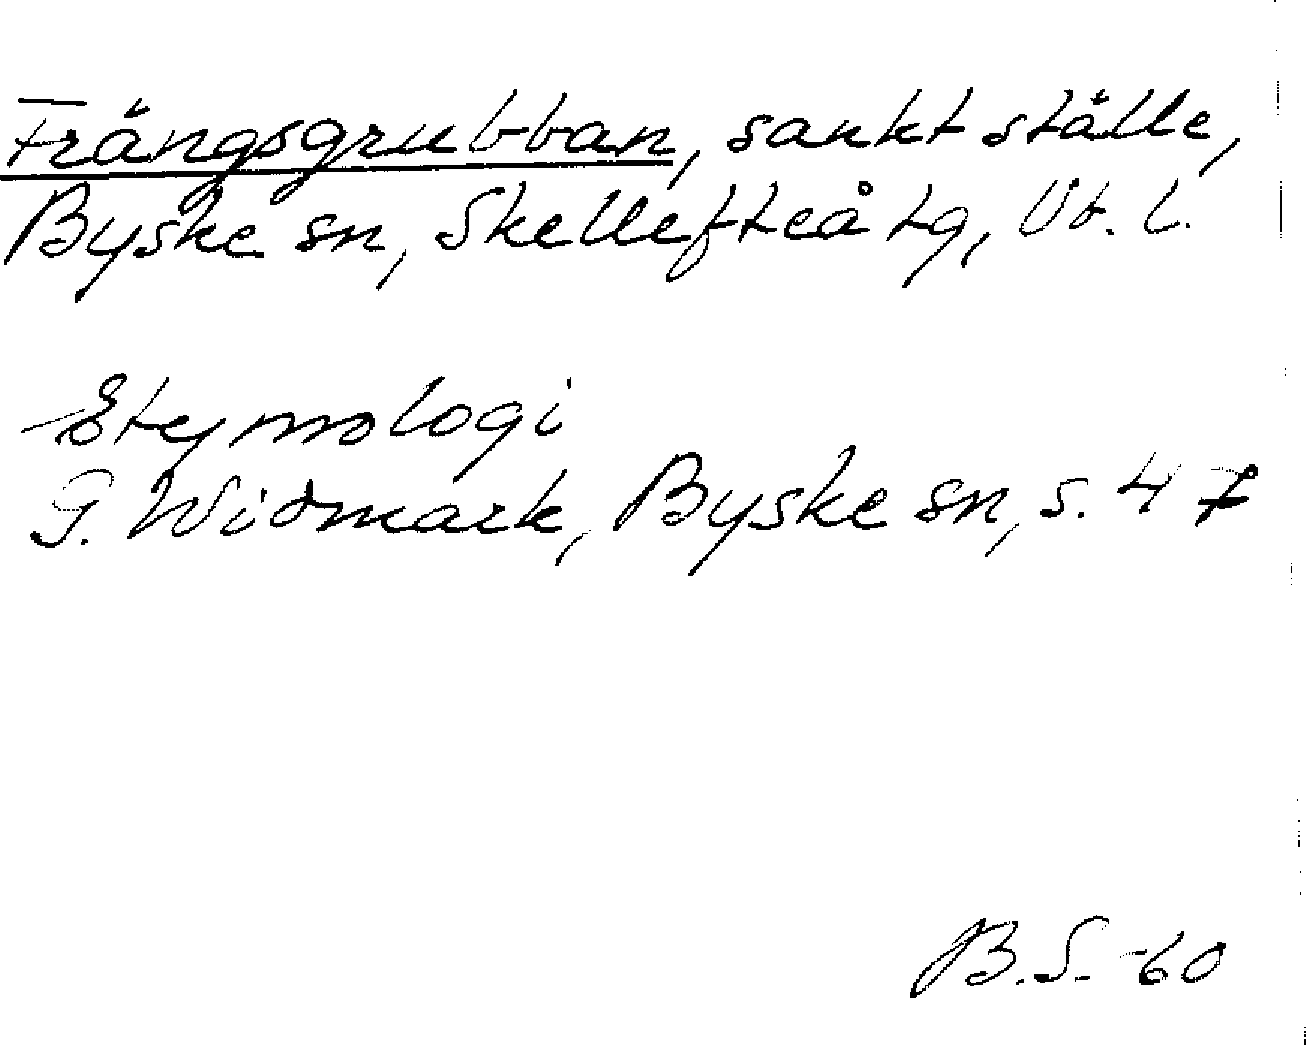 Frängsgrubban, sankt ställe,
Byske sn, Skellefteå tg, Vb. l.
Etymologi
G. Widmark, Byske sn, s. 47
B.S. -60